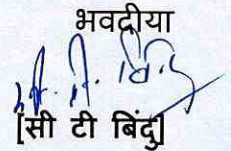 भवदीया
[सी टी बिंदु]